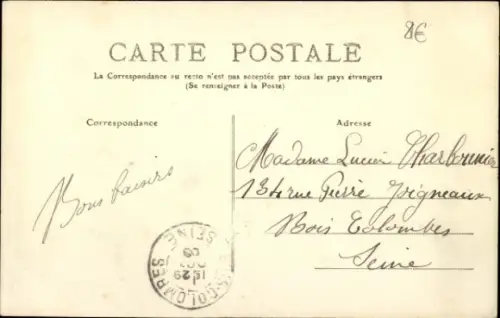 8€
CARTE POSTALE
La Correspondance au recto n'est pas acceptée par tous les pays étrangers
(Se renseigner à la Poste)
Correspondance
Adresse
Madame Lucien Charbonnier
134 rue Pierre Joigneaux
Bois Colombes
Seine
Bons baisers
BOIS-COLOMBES
SEINE
15 29
09